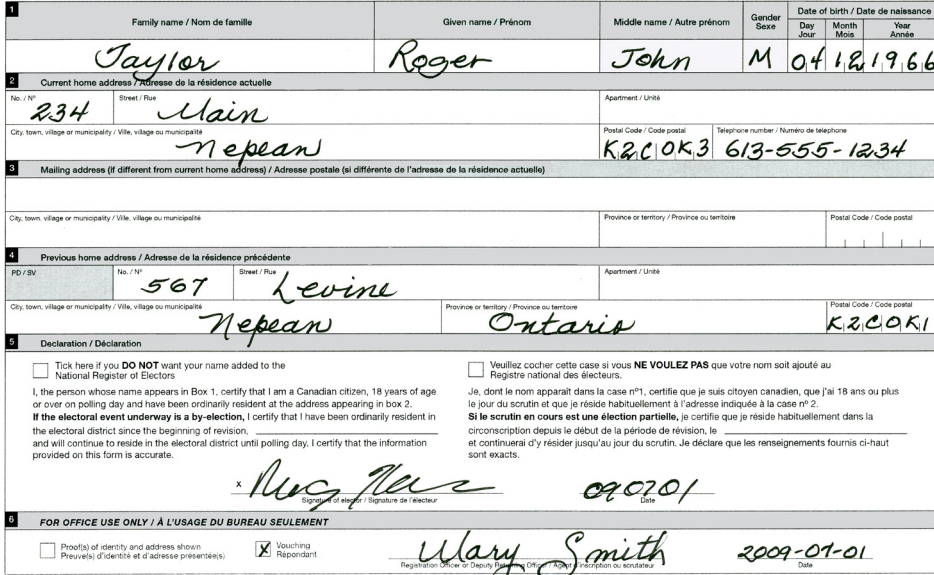 1
Family name / Nom de famille Given name / Prénom Middle name / Autre prénom Gender Sexe Date of birth / Date de naissance
Day Jour Month Mois Year Année
Taylor Roger John M 04 12 1966
2 Current home address / Adresse de la résidence actuelle
No. / Nº Street / Rue Apartment / Unité
234 Main
City, town, village or municipality / Ville, village ou municipalité Postal Code / Code postal Telephone number / Numéro de téléphone
Nepean K2C0K3 613-555-1234
3 Mailing address (if different from current home address) / Adresse postale (si différente de l'adresse de la résidence actuelle)
City, town, village or municipality / Ville, village ou municipalité Province or territory / Province ou territoire Postal Code / Code postal
4 Previous home address / Adresse de la résidence précédente
PD / SV No. / Nº Street / Rue Apartment / Unité
567 Levine
City, town, village or municipality / Ville, village ou municipalité Province or territory / Province ou territoire Postal Code / Code postal
Nepean Ontario K2C0K1
5 Declaration / Déclaration
Tick here if you DO NOT want your name added to the
National Register of Electors
I, the person whose name appears in Box 1, certify that I am a Canadian citizen, 18 years of age
or over on polling day and have been ordinarily resident at the address appearing in box 2.
If the electoral event underway is a by-election, I certify that I have been ordinarily resident in
the electoral district since the beginning of revision,
and will continue to reside in the electoral district until polling day. I certify that the information
provided on this form is accurate.
Veuillez cocher cette case si vous NE VOULEZ PAS que votre nom soit ajouté au
Registre national des électeurs.
Je, dont le nom apparaît dans la case nº1, certifie que je suis citoyen canadien, que j'ai 18 ans ou plus
le jour du scrutin et que je réside habituellement à l'adresse indiquée à la case nº 2.
Si le scrutin en cours est une élection partielle, je certifie que je réside habituellement dans la
circonscription depuis le début de la période de révision, le
et continuerai d'y résider jusqu'au jour du scrutin. Je déclare que les renseignements fournis ci-haut
sont exacts.
x 090701
Signature of elector / Signature de l'électeur Date
6 FOR OFFICE USE ONLY / À L'USAGE DU BUREAU SEULEMENT
Proof(s) of identity and address shown
Preuve(s) d'identité et d'adresse présentée(s)
X Vouching
Répondant
Mary Smith 2009-07-01
Registration Officer or Deputy Returning Officer / Agent d'inscription ou scrutateur Date